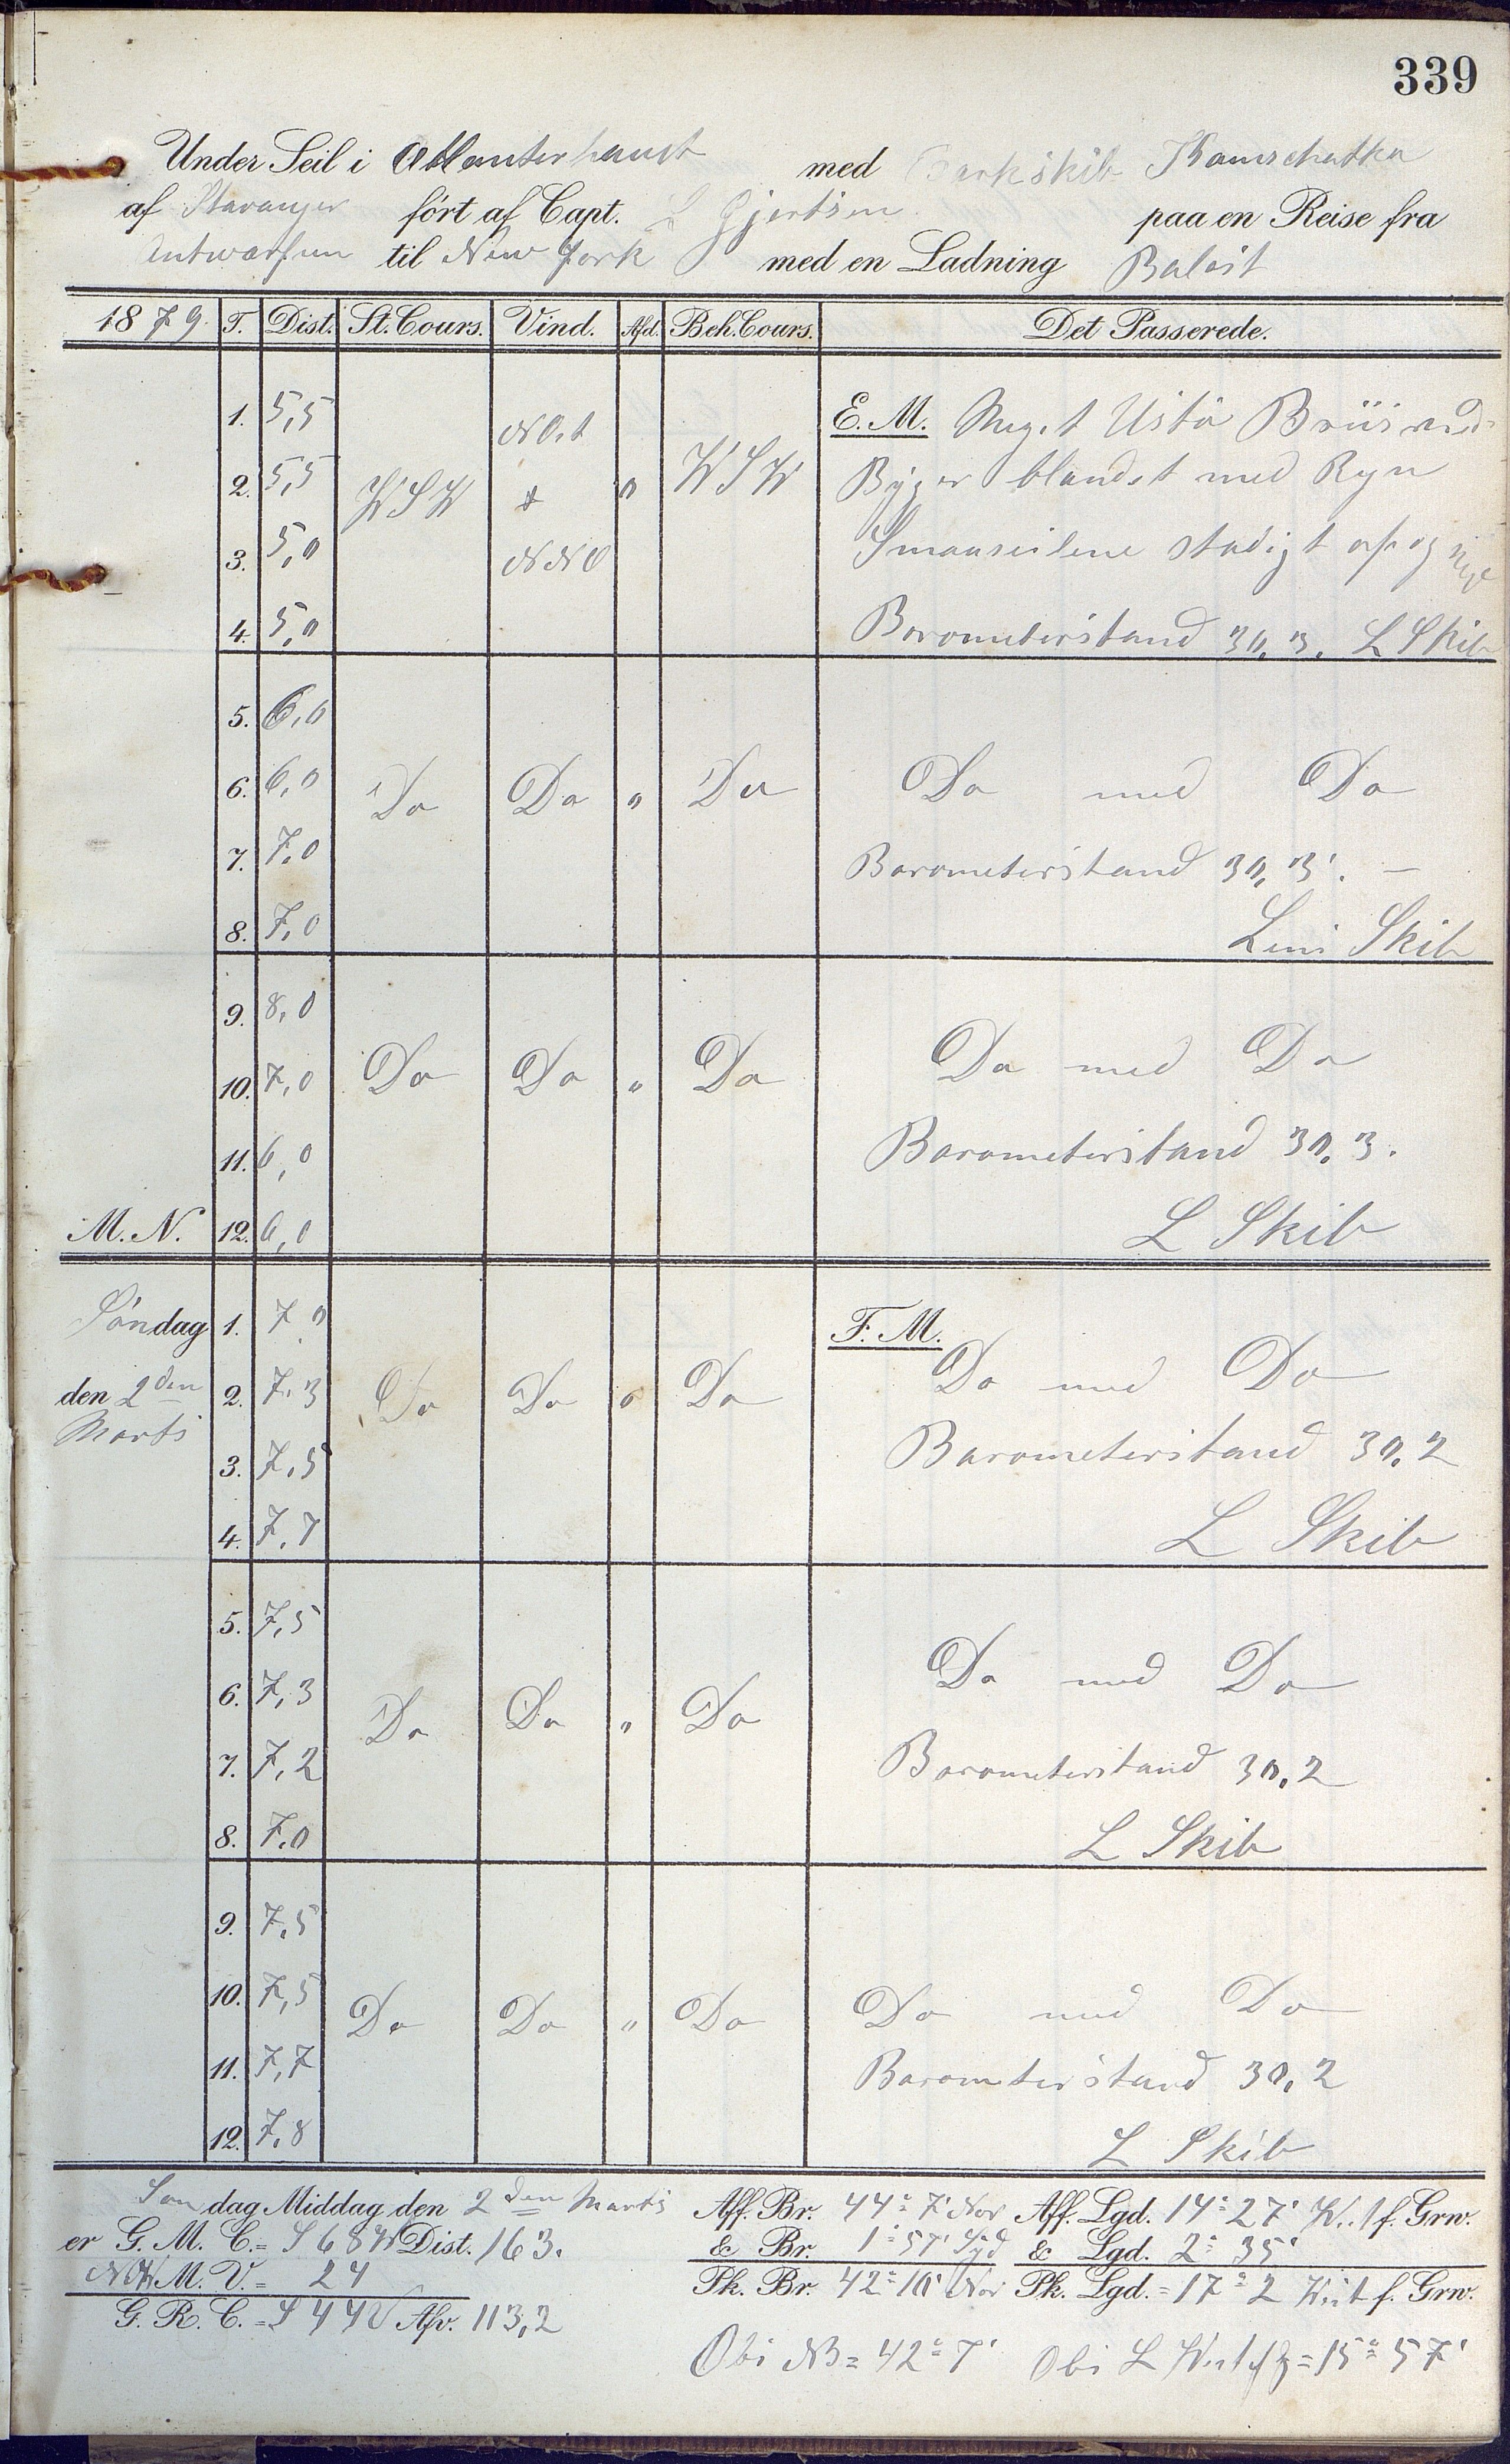 339
Under Seil i Atlanterhavet med Barkskib Kamschatka
af Stavanger ført af Capt. L Gjertsen paa en Reise fra
Antwerpen til New York med en Ladning Balast
1879. T. Dist. St. Cours. Vind. Afd. Beh. Cours. Det Passerede.
1. 5,5 NO.t E.M. Meget Ustø Briis med
2. 5,5 WSW " WSW Byger blandet med Regn
3. 5,0 NNO Smaaseilene stadigt op og
4. 5,0 Barometerstand 30,3. L Skib
5. 6,0
6. 6,0 Do Do " Do Do med Do
7. 7,0 Barometerstand 30,3. –
8. 7,0 Lens Skib
9. 8,0
10. 7,0 Do Do " Do Do med Do
11. 6,0 Barometerstand 30,3.
M. N. 12. 6,0 L Skib
Søndag 1. 7 0 F. M.
den 2den 2. 7,3 Do Do " Do Do med Do
Marts
3. 7,5 Barometerstand 30,2
4. 7,7 L Skib
5. 7,5
6. 7,3 Do Do " Do Do med Do
7. 7,2 Barometerstand 30,2
8. 7,0 L Skib
9. 7,5
10. 7,5 Do Do " Do Do med Do
11. 7,7 Barometerstand 30,2
12. 7,8 L Skib
Søndag Middag den 2den Marts Aff. Br. 44° 7' Nor Aff. Lgd. 14° 27' W.t f. Grw.
er G. M. C. = S 68 W Dist. 163. & Br. 1° 57' Syd & Lgd. 2° 35'
M. V. = 24 Pk. Br. 42° 10' Nor Pk. Lgd. = 17° 2 West f. Grw.
G. R. C. = S 44 V Afv. 113,2
Obs NB = 42° 7' Obs L West = 15° 57'